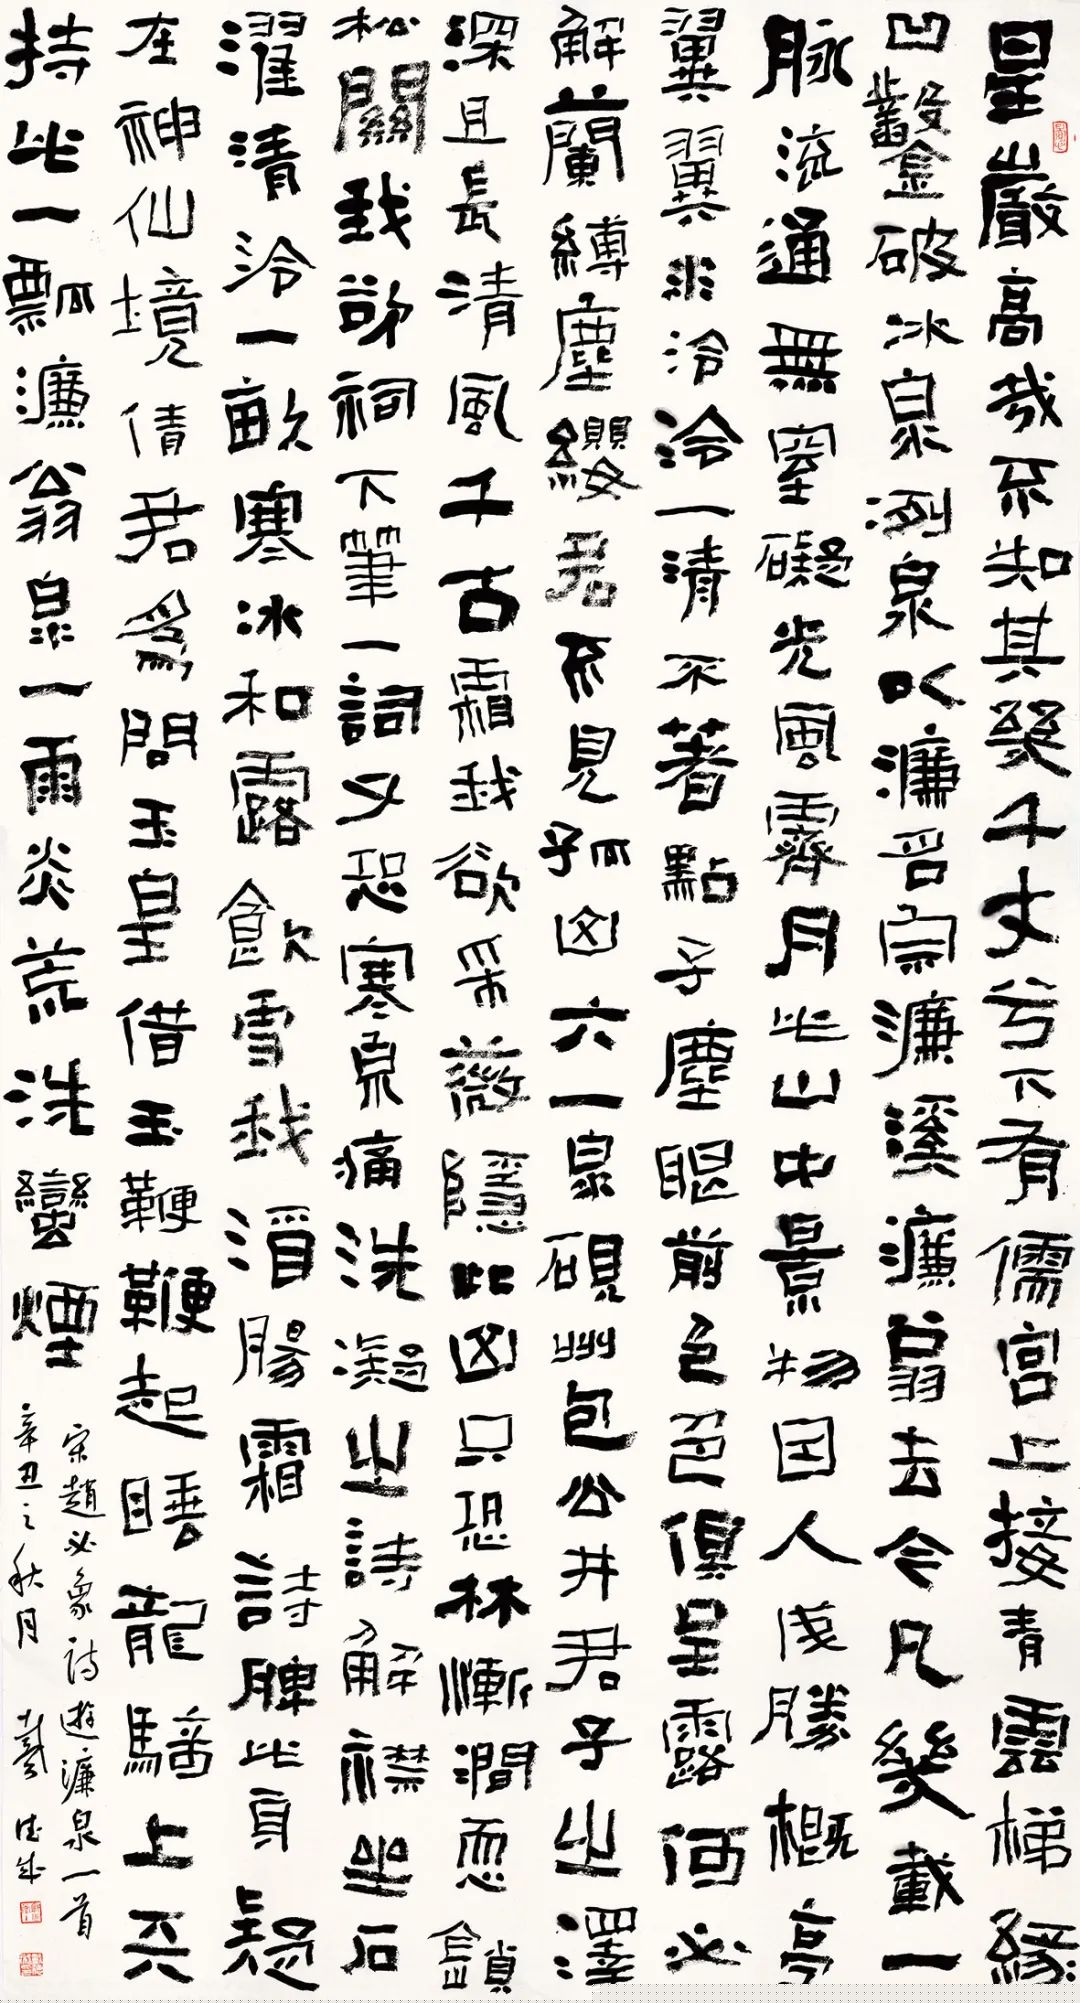 星巖高哉不知其幾千丈兮下有儒宮上接青雲梯緣
凹鑿破冰泉冽泉以濂名宗濂溪濂翁去今凡幾載一
脉流通無窒礙光風霽月此山中景物因人成勝概亭
翼翼水泠泠一清不著點子塵眼前色色俱呈露何必
解蘭縛塵纓君不見孤山六一泉硯州包公井君子之澤
深且長清風千古霜我欲采薇隱此山只恐林慚澗恧鎖
松關我欲祠下筆一詞又恐寒泉痛洗凝之詩解襟坐石
濯清泠一畝寒冰和露飲雪我腸霜詩脾此身疑
在神仙境倩君為問玉皇借玉鞭鞭起睡龍上天
持此一瓢濂翁泉一雨炎荒洗蠻煙
宋趙必象詩遊濂泉一首
辛丑之秋月